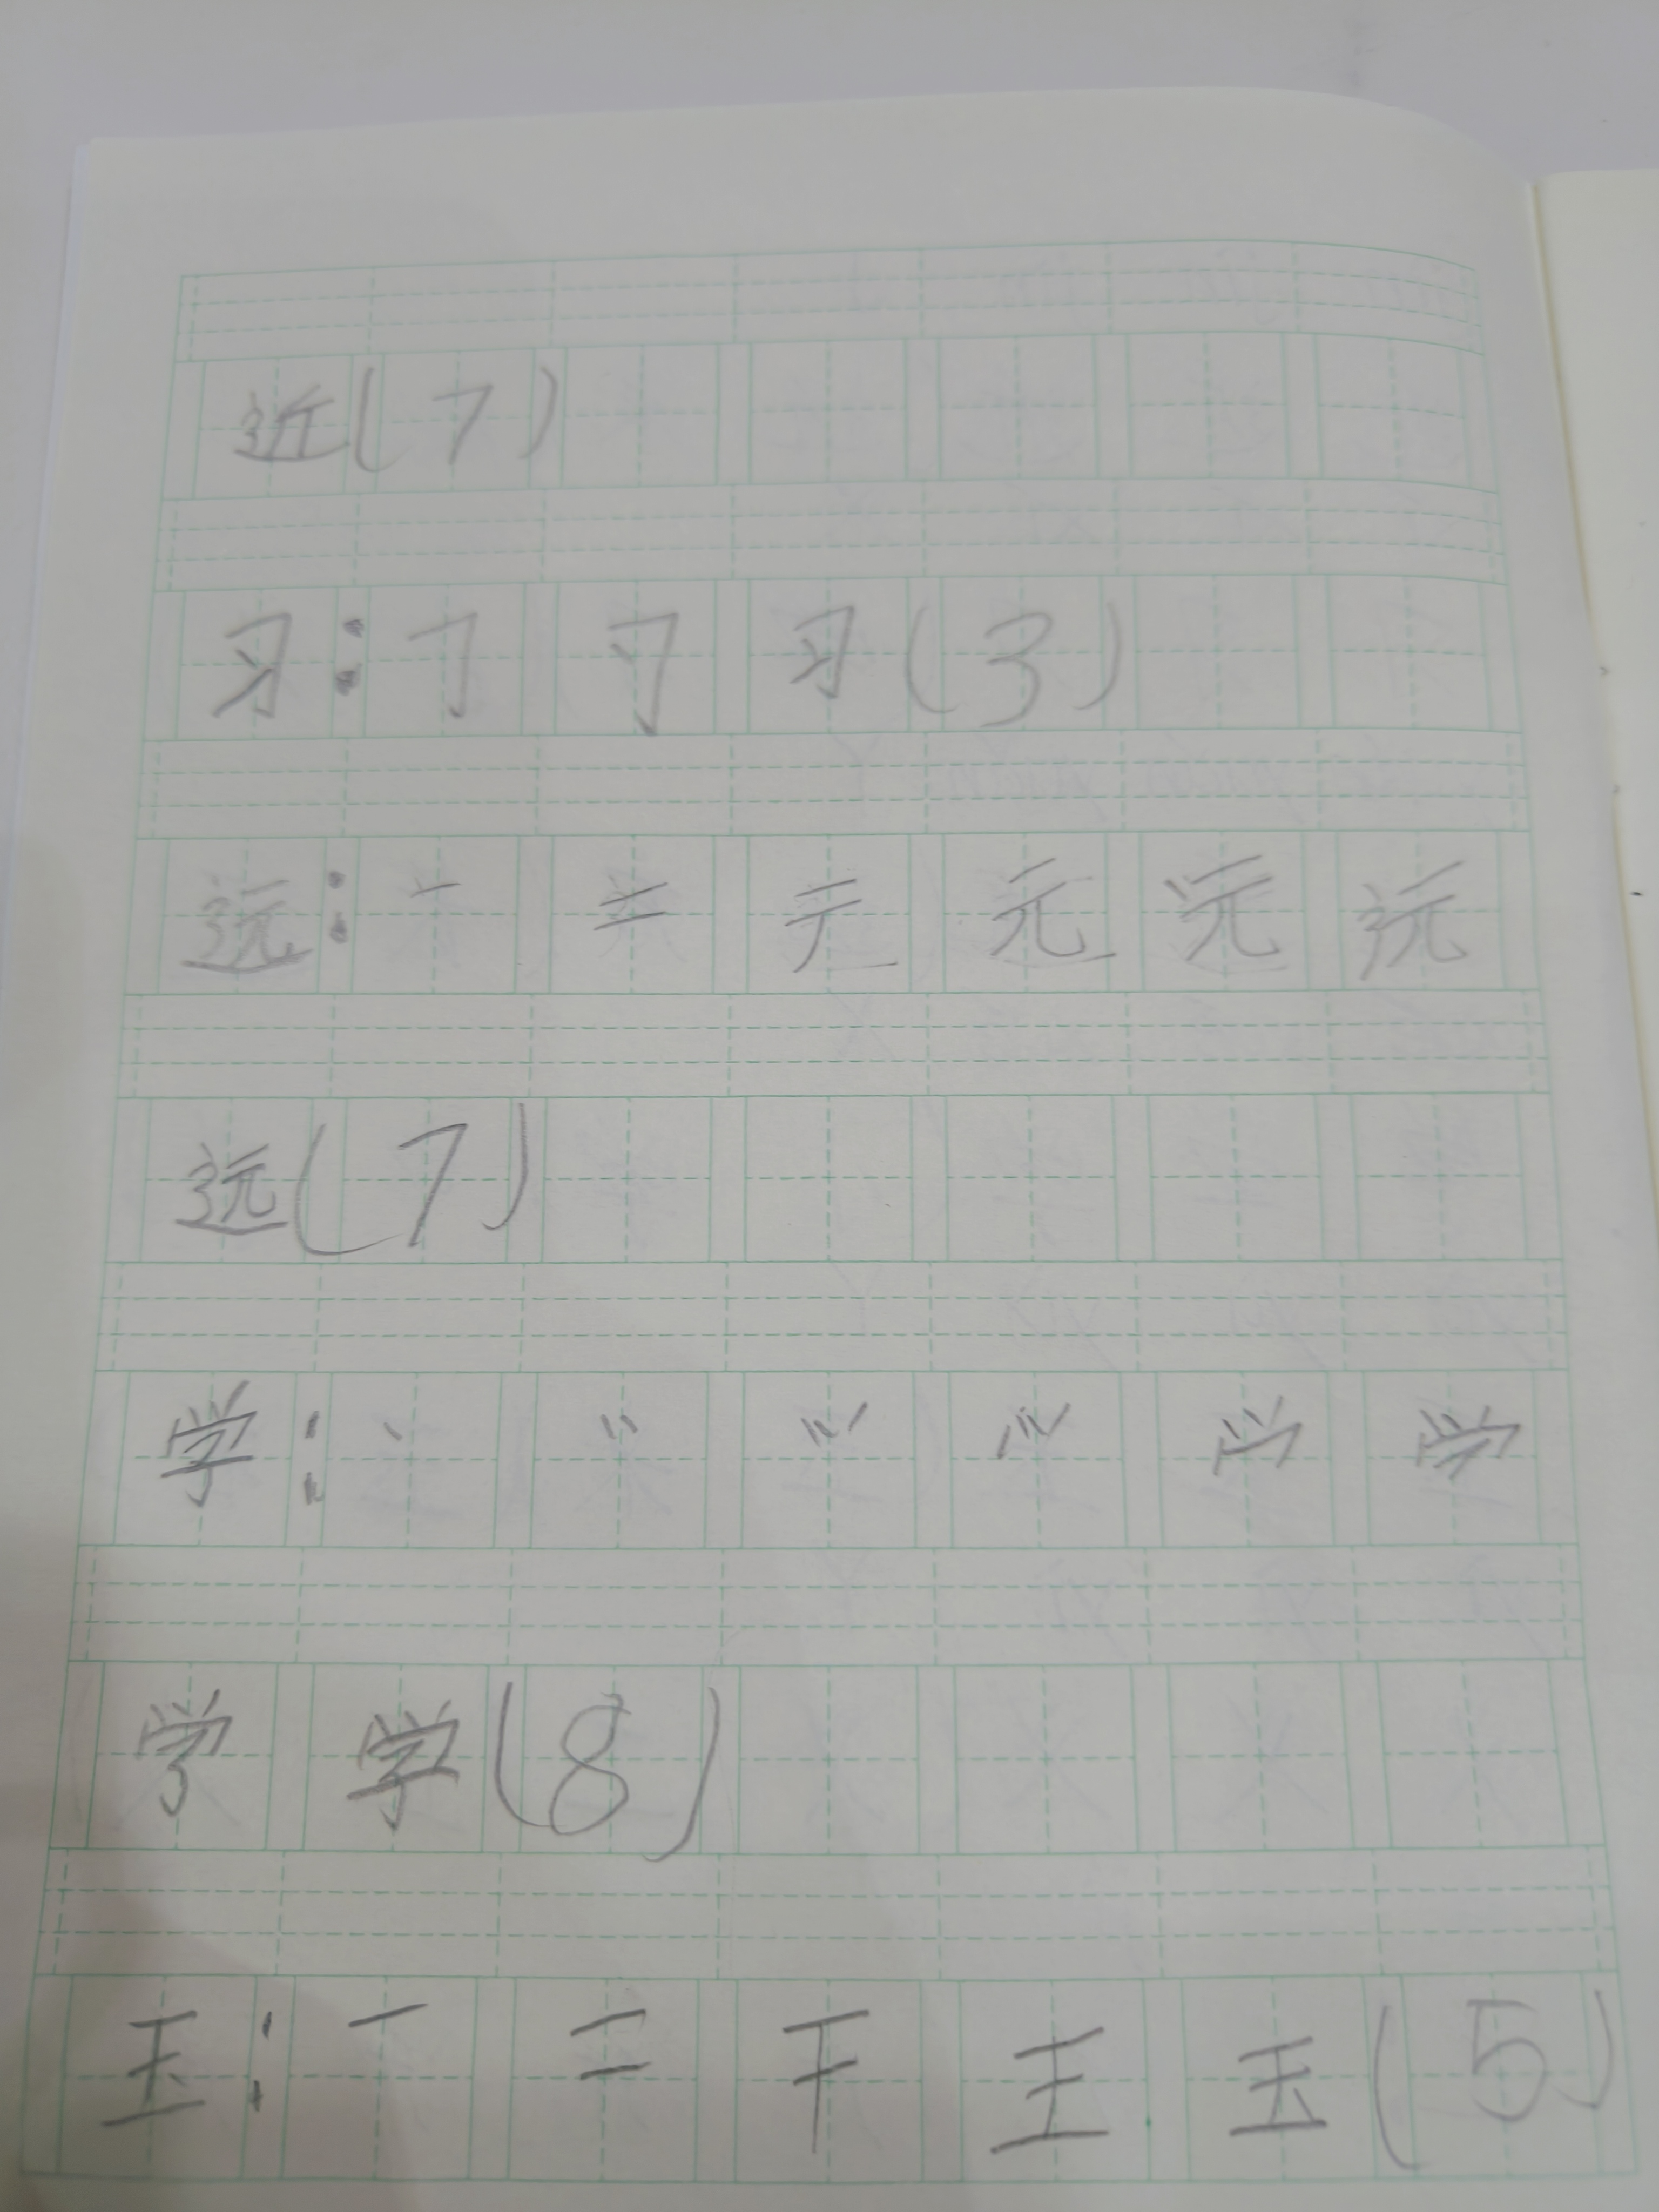 近(7)
习:㇆ 习(3)
远:一 二 元 远
远(7)
学:丶
学 学(8)
玉:一 二 干 王 玉(5)